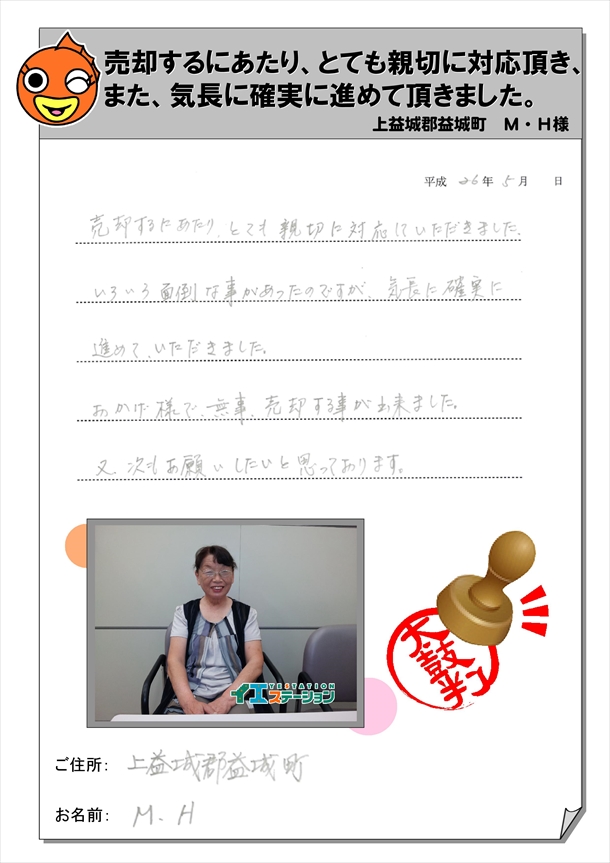 売却するにあたり、とても親切に対応頂き、
また、気長に確実に進めて頂きました。
上益城郡益城町　M・H様
平成 26年 5月 日
売却するにあたり、とても親切に対応していただきました。
いろいろ面倒な事があったのですが、気長に確実に
進めて、いただきました。
おかげ様で、無事、売却する事が出来ました。
又、次もお願いしたいと思っております。
YESTATION
イエステーション
太鼓判
ご住所： 上益城郡益城町
お名前： M.H